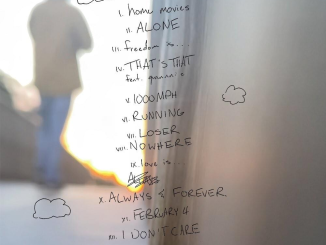 I. home movies
II. ALONE
III. freedom
IV. THAT'S THAT
feat.
V. 1000MPH
VI. RUNNING
VII. LOSER
VIII. NOWHERE
IX. love is...
X. ALWAYS & FOREVER
XI. FEBRUARY 4
XII. I DON'T CARE